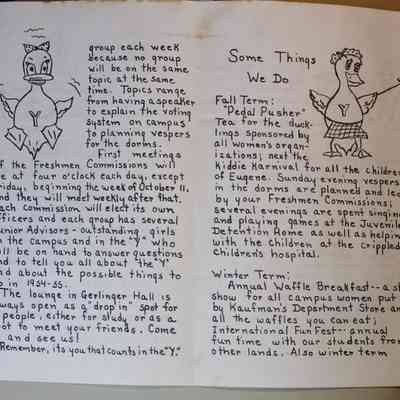 group each week
because no group
will be on the same
topic at the same
time. Topics range
from having a speaker
to explain the voting
system on campus
to planning vespers
for the dorms.
First meetings
of the Freshmen Commissions will
be at four o'clock each day, except
Friday, beginning the week of October 11,
and they will meet weekly after that.
Each commission will elect its own
officers and each group has several
Junior Advisors - outstanding girls
on the campus and in the "Y" who
will be on hand to answer questions
and to tell you all about the "Y"
and about the possible things to
do in 1954-55.
The lounge in Gerlinger Hall is
always open as a "drop in" spot for
people, either for study or as a
spot to meet your friends. Come
and see us!
Remember, its you that counts in the "Y."
Y
Some Things
We Do
Fall Term:
"Pedal Pusher"
Tea for the duck-
lings sponsored by
all women's organ-
izations; next the
Kiddie Karnival for all the children
of Eugene. Sunday evening vespers
in the dorms are planned and led
by your Freshmen Commissions;
several evenings are spent singing
and playing games at the Juvenile
Detention Home as well as helping
with the children at the crippled
Children's hospital.
Winter Term:
Annual Waffle Breakfast--a
show for all campus women put
by Kaufman's Department Store and
all the waffles you can eat;
International Fun Fest--annual
fun time with our students from
other lands. Also winter term
Y